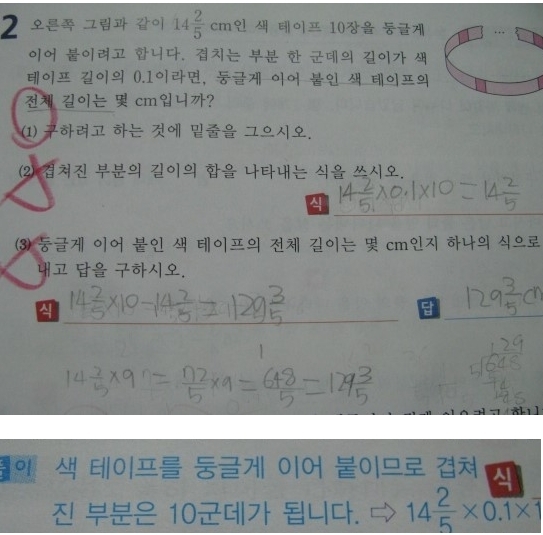 2 오른쪽 그림과 같이 14 2/5 cm인 색 테이프 10장을 둥글게
이어 붙이려고 합니다. 겹치는 부분 한 군데의 길이가 색
테이프 길이의 0.1이라면, 둥글게 이어 붙인 색 테이프의
전체 길이는 몇 cm입니까?
(1) 구하려고 하는 것에 밑줄을 그으시오.
(2) 겹쳐진 부분의 길이의 합을 나타내는 식을 쓰시오.
식 14 2/5 × 0.1 × 10 = 14 2/5
(3) 둥글게 이어 붙인 색 테이프의 전체 길이는 몇 cm인지 하나의 식으로
내고 답을 구하시오.
식 14 2/5 × 10 - 14 2/5 = 129 3/5 답 129 3/5 cm
14 2/5 × 9 = 72/5 × 9 = 648/5 = 129 3/5
색 테이프를 둥글게 이어 붙이므로 겹쳐 식
진 부분은 10군데가 됩니다. ⇨ 14 2/5 × 0.1 × 1